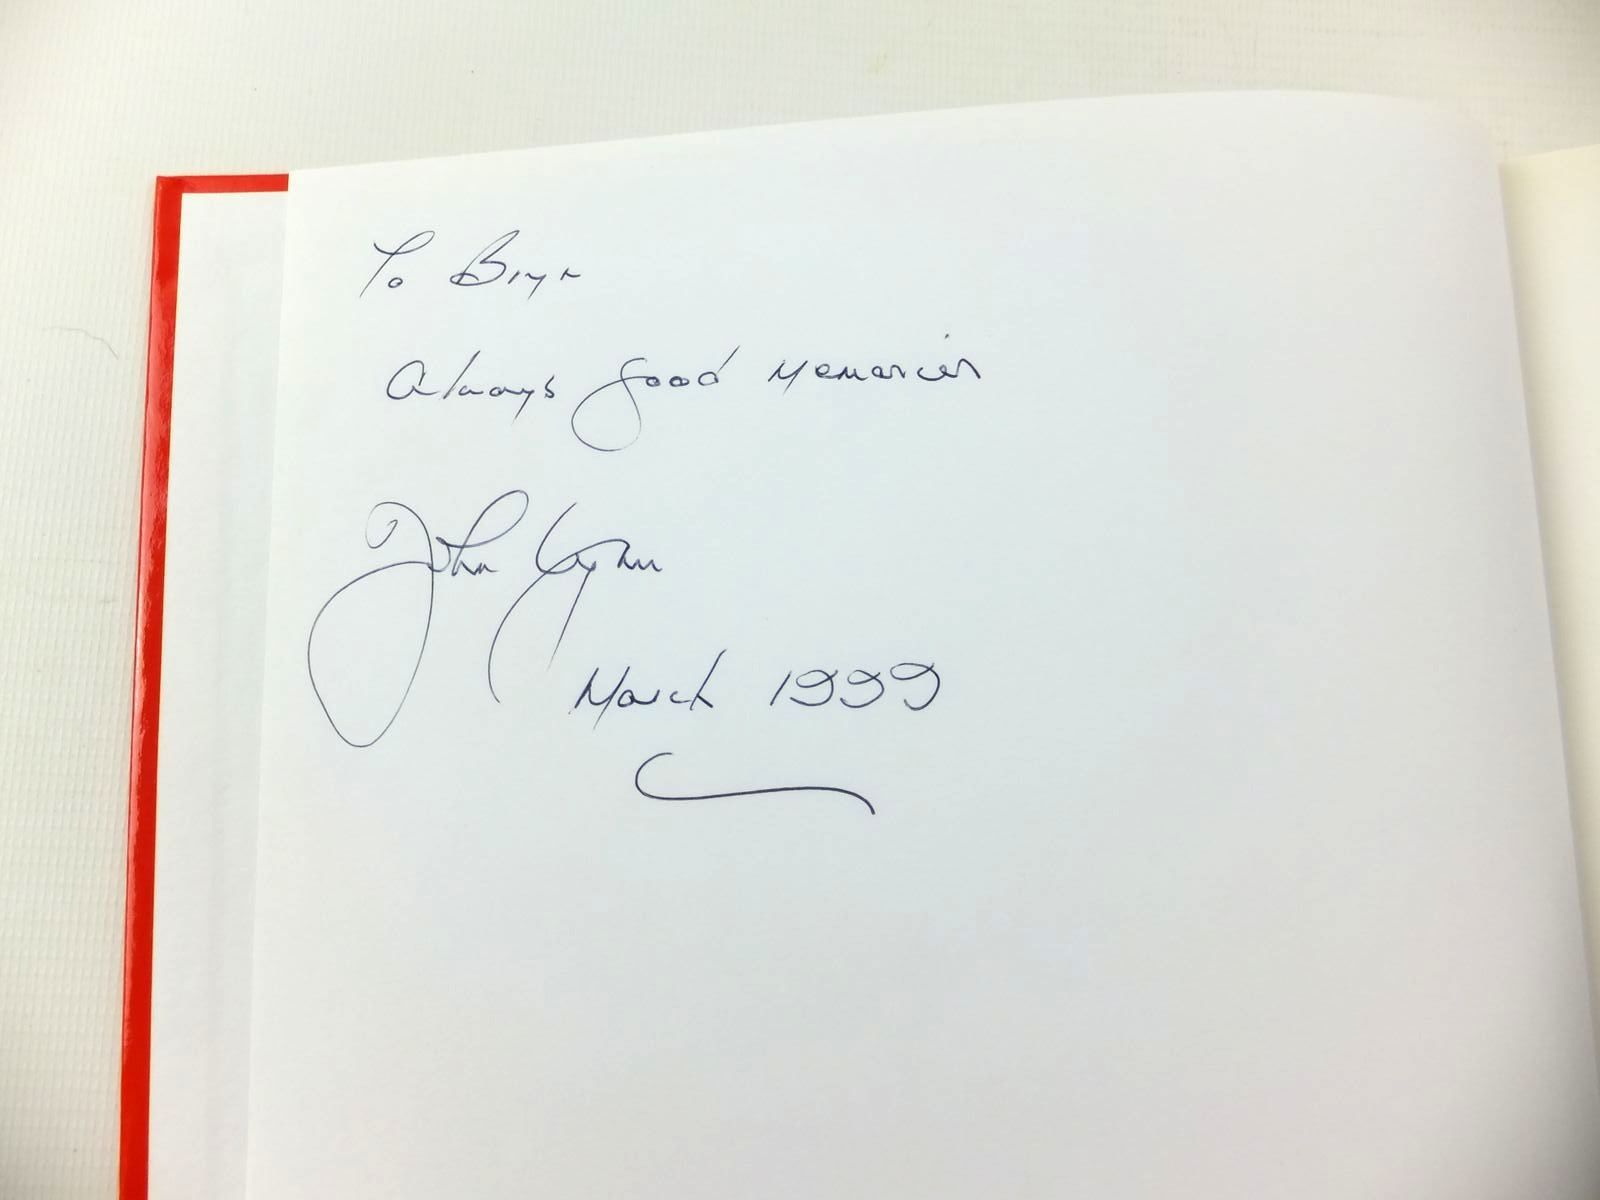 To Bryn
Always good Memories
John Lynn
March 1999